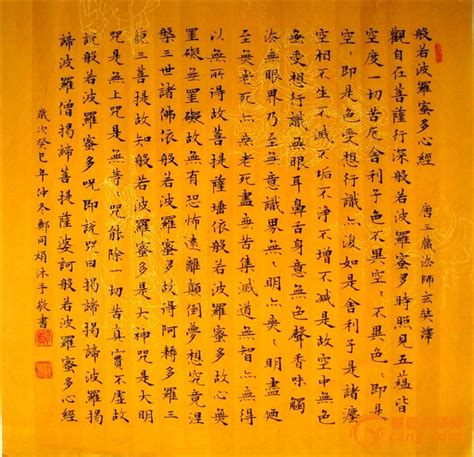 般若波羅蜜多心經 唐三藏法師玄奘譯
觀自在菩薩行深般若波羅蜜多時照見五蘊皆
空度一切苦厄舍利子色不異空〻不異色〻即是
空〻即是色受想行識亦復如是舍利子是諸法
空相不生不滅不垢不淨不增不減是故空中無色
無受想行識無眼耳鼻舌身意無色聲香味觸
法無眼界乃至無意識界無〻明亦無〻明盡乃
至無老死亦無老死盡無苦集滅道無智亦無得
以無所得故菩提薩埵依般若波羅蜜多故心無
罣礙無罣礙故無有恐怖遠離顛倒夢想究竟涅
槃三世諸佛依般若波羅蜜多故得阿耨多羅三
藐三菩提故知般若波羅蜜多是大神咒是大明
咒是無上咒是無等〻咒能除一切苦真實不虛故
說般若波羅蜜多咒即說咒曰揭諦揭諦波羅揭
諦波羅僧揭諦菩提薩婆訶般若波羅蜜多心經
歲次癸巳年仲冬鄭同娟沐手敬書
cang.com